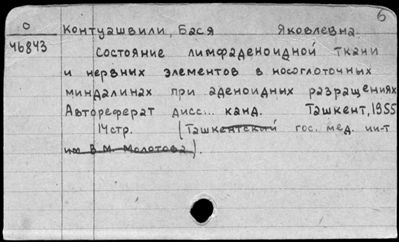 б
О Контуашвили, Бася Яковлевна.
46843
Состояние лимфаденоидной ткани
и нервных элементов в носоглоточных
миндалинах при аденоидных разращениях
Автореферат дисс... канд. Ташкент, 1955
14стр. (Ташкентский гос. мед. ин-т
им В.М. Молотова).